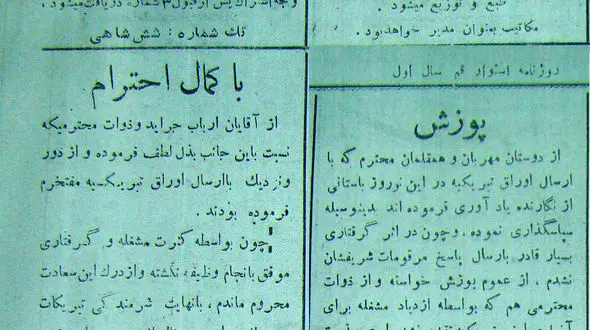 طبع و توزیع میشود.
مکاتیب بعنوان مدیر خواهد بود.
روزنامه استوار قم سال اول
پوزش
از دوستان مهربان و همقلمان محترم که با
ارسال اوراق تبریکیه در این نوروز باستانی
از نگارنده یاد آوری فرموده اند بدینوسیله
سپاسگذاری نموده، و چون در اثر گرفتاری
بسیار قادر بارسال پاسخ مرقومات شریفشان
نشدم. از عموم پوزش خواسته و از ذوات
محترمی هم که بواسطه ازدیاد مشغله برای
تک شماره: شش شاهی
با کمال احترام
از آقایان ارباب جراید و ذوات محترمیکه
نسبت باین جانب بذل لطف فرموده و از دور
و نزدیک باارسال اوراق تبریکیه مفتخرم
فرموده بودند.
چون بواسطه کثرت مشغله و گرفتاری
موفق بانجام وظیفه نگشته و از درک این سعادت
محروم ماندم، بانهایت شرمندگی تبریکات